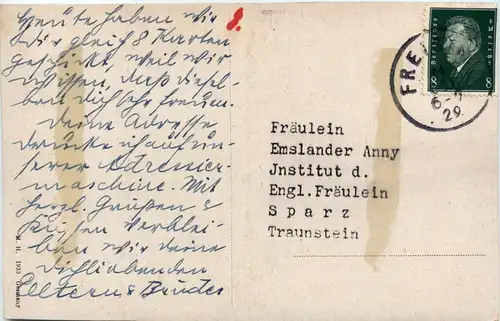 Heute haben wir 8.
Dir gleich 8 Karten
geschickt, weil wir
wissen, daß diesel-
ben Dich sehr freuen.
Deine Adresse
drücken auf un-
serer Adressier-
maschine. Mit
herzl. Grüßen &
Küssen verblei-
ben wir Deine
Dichliebenden
Eltern & Bruder
Deutsches Reich
8 8
FREI
6-7
29
Fräulein
Emslander Anny
Jnstitut d.
Engl.Fräulein
Sparz
Traunstein